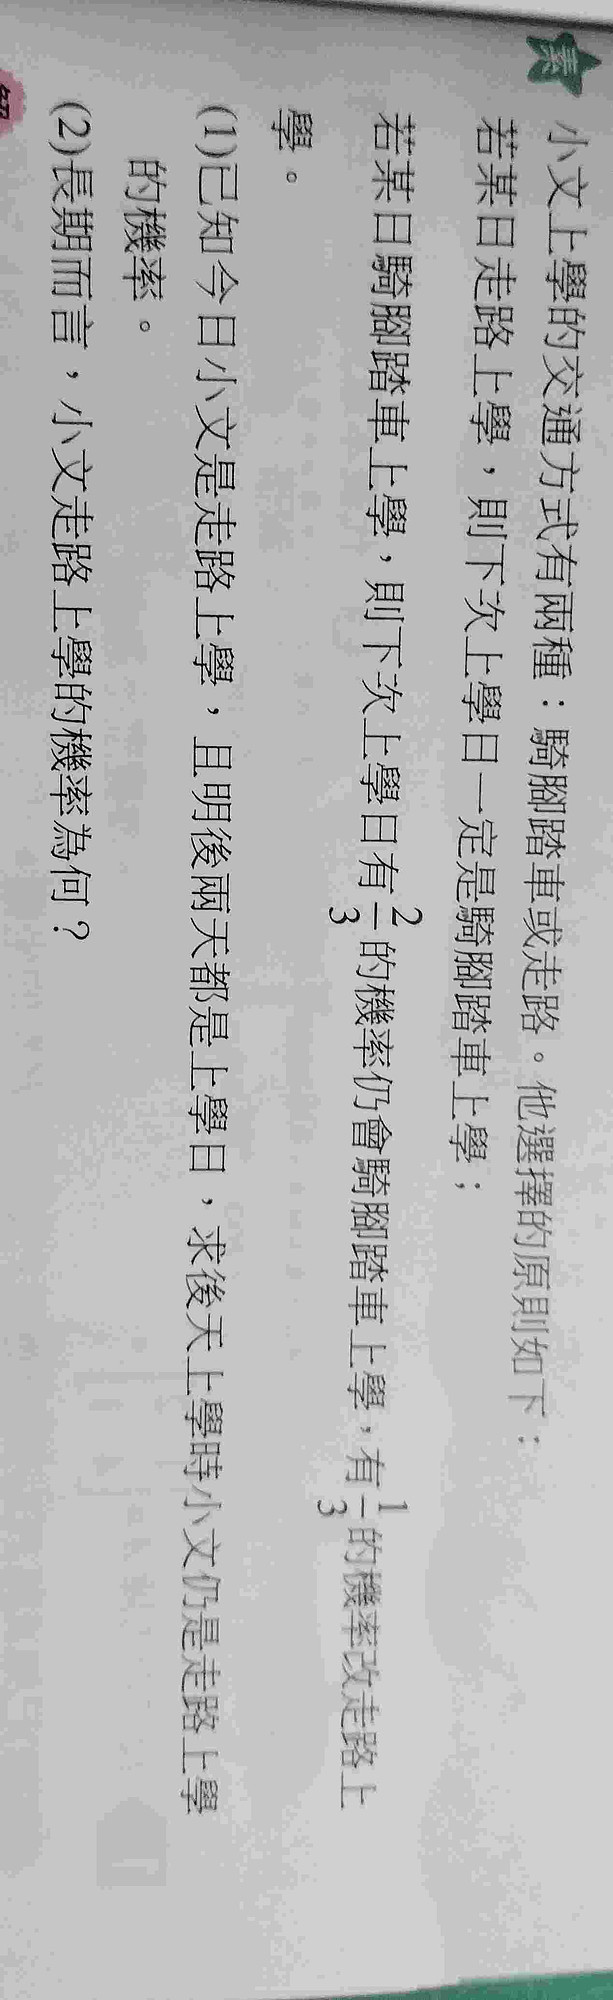 小文上學的交通方式有兩種：騎腳踏車或走路。他選擇的原則如下：
若某日走路上學，則下次上學日一定是騎腳踏車上學；
若某日騎腳踏車上學，則下次上學日有2/3的機率仍會騎腳踏車上學，有1/3的機率改走路上
學。
(1)已知今日小文是走路上學，且明後兩天都是上學日，求後天上學時小文仍是走路上學
的機率。
(2)長期而言，小文走路上學的機率為何？